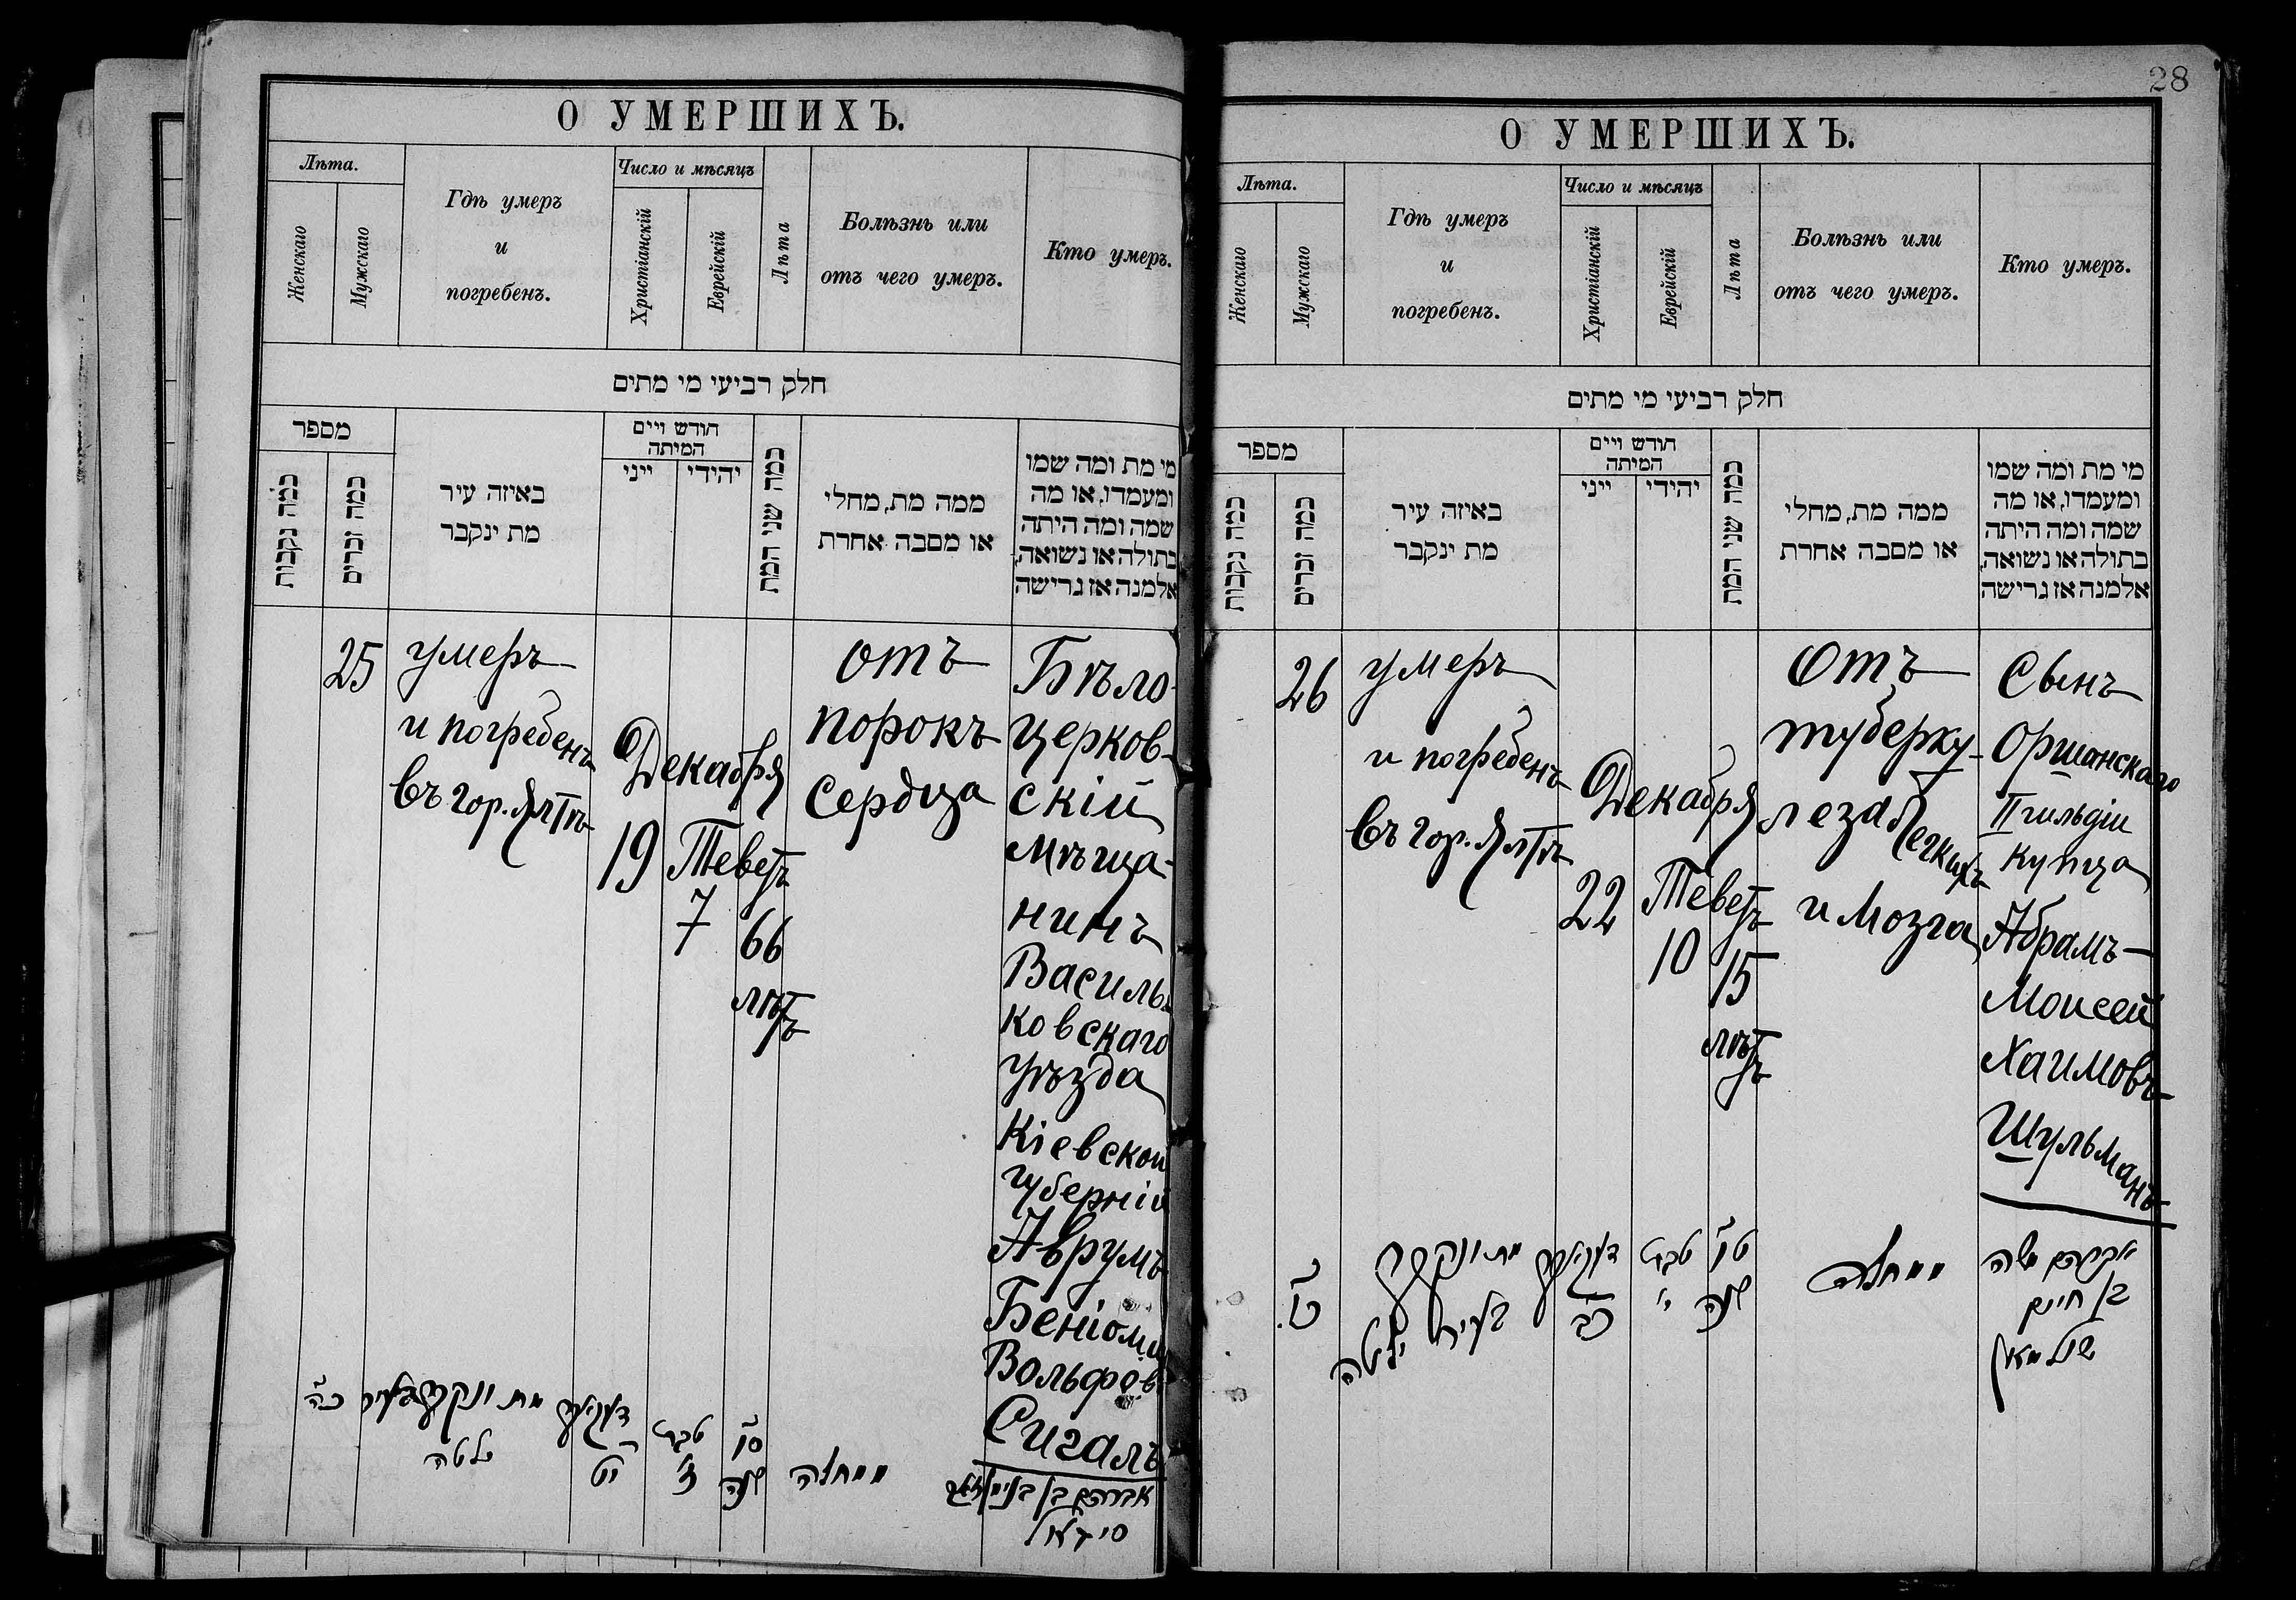 О УМЕРШИХЪ.
Лѣта.
Женскаго
Мужскаго
Гдѣ умеръ
и
погребенъ.
Число и мѣсяцъ
Христіанскій
Еврейскій
Лѣта
Болѣзнь или
отъ чего умеръ.
Кто умеръ.
חלק רביעי מי מתים
מספר
כמה נקבות
כמה זכרים
באיזה עיר
מת ינקבר
חודש ויים
המיתה
ייני
יהידי
כמה שני המת
ממה מת, מחלי
או מסבה אחרת
מי מת ומה שמו
ומעמדו, או מה
שמה ומה היתה
בתולה או נשואה,
אלמנה אז גרישה
25
умеръ
и погребенъ
въ гор. Ялтѣ
Декабря
19
Теветъ
7
66
лѣтъ
отъ
порокъ
сердца
Бѣло-
церков-
скій
мѣща-
нинъ
Василь-
ковскаго
уѣзда
Кіевской
губерніи
Аврумъ
Беніомин
Вольфов
Сигалъ
כ״ה
מת ונקבר בעיר
ילטה
דעקאבר
יט
טבת
ז׳
ס״ו
שנה
ממחלה
אברהם בן בנימין זאב
סיגאל
28
О УМЕРШИХЪ.
Лѣта.
Женскаго
Мужскаго
Гдѣ умеръ
и
погребенъ.
Число и мѣсяцъ
Христіанскій
Еврейскій
Лѣта
Болѣзнь или
отъ чего умеръ.
Кто умеръ.
חלק רביעי מי מתים
מספר
כמה נקבות
כמה זכרים
באיזה עיר
מת ינקבר
חודש ויים
המיתה
ייני
יהידי
כמה שני המת
ממה מת, מחלי
או מסבה אחרת
מי מת ומה שמו
ומעמדו, או מה
שמה ומה היתה
בתולה או נשואה,
אלמנה אז גרישה
26
умеръ
и погребенъ
въ гор. Ялтѣ
Декабря
22
Теветъ
10
15
лѣтъ
отъ
туберку-
леза легкихъ
и мозга
Сынъ
Оршанскаго
II гильдіи
купца
Абрамъ-
Моисей
Хаимовъ
Шульманъ
מת ונקבר
בעיר ילטה
דעקאבר
כב
טבת
י׳
ט״ו
שנה
ממחלה
אברהם משה
בן חיים
שולמאן